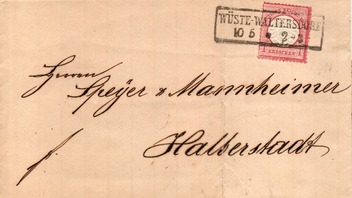 WÜSTE-WALTERSDORF
10 5 * 2-3
Herren
Speyer & Mannheimer
Halberstadt